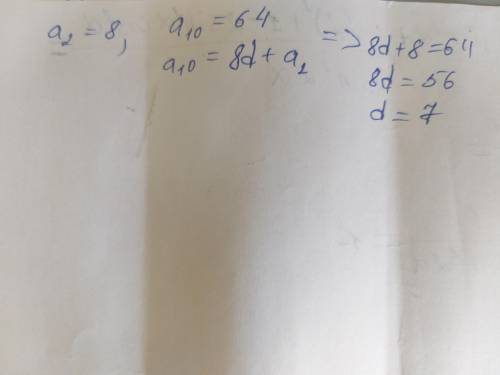 a₂ = 8, a₁₀ = 64
a₁₀ = 8d + a₂ => 8d + 8 = 64
8d = 56
d = 7